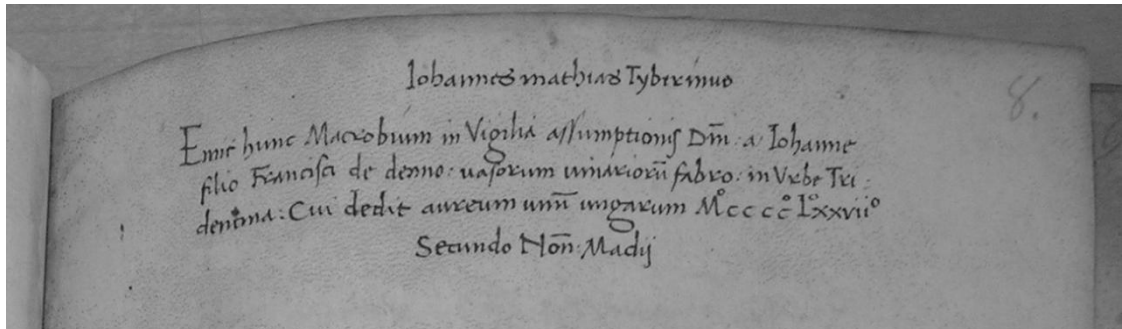 Iohannes mathias Tyberinus
Emit hunc Macrobium in Vigilia assumptionis Dm̄: a Iohanne
filio Francisci de denno: uasorum uinariorū fabro: in Vrbe Tri:
dentina: Cui dedit aureum unū ungarum Mºccccº Lºxxviiº
Secundo Non̄: Madij
8.